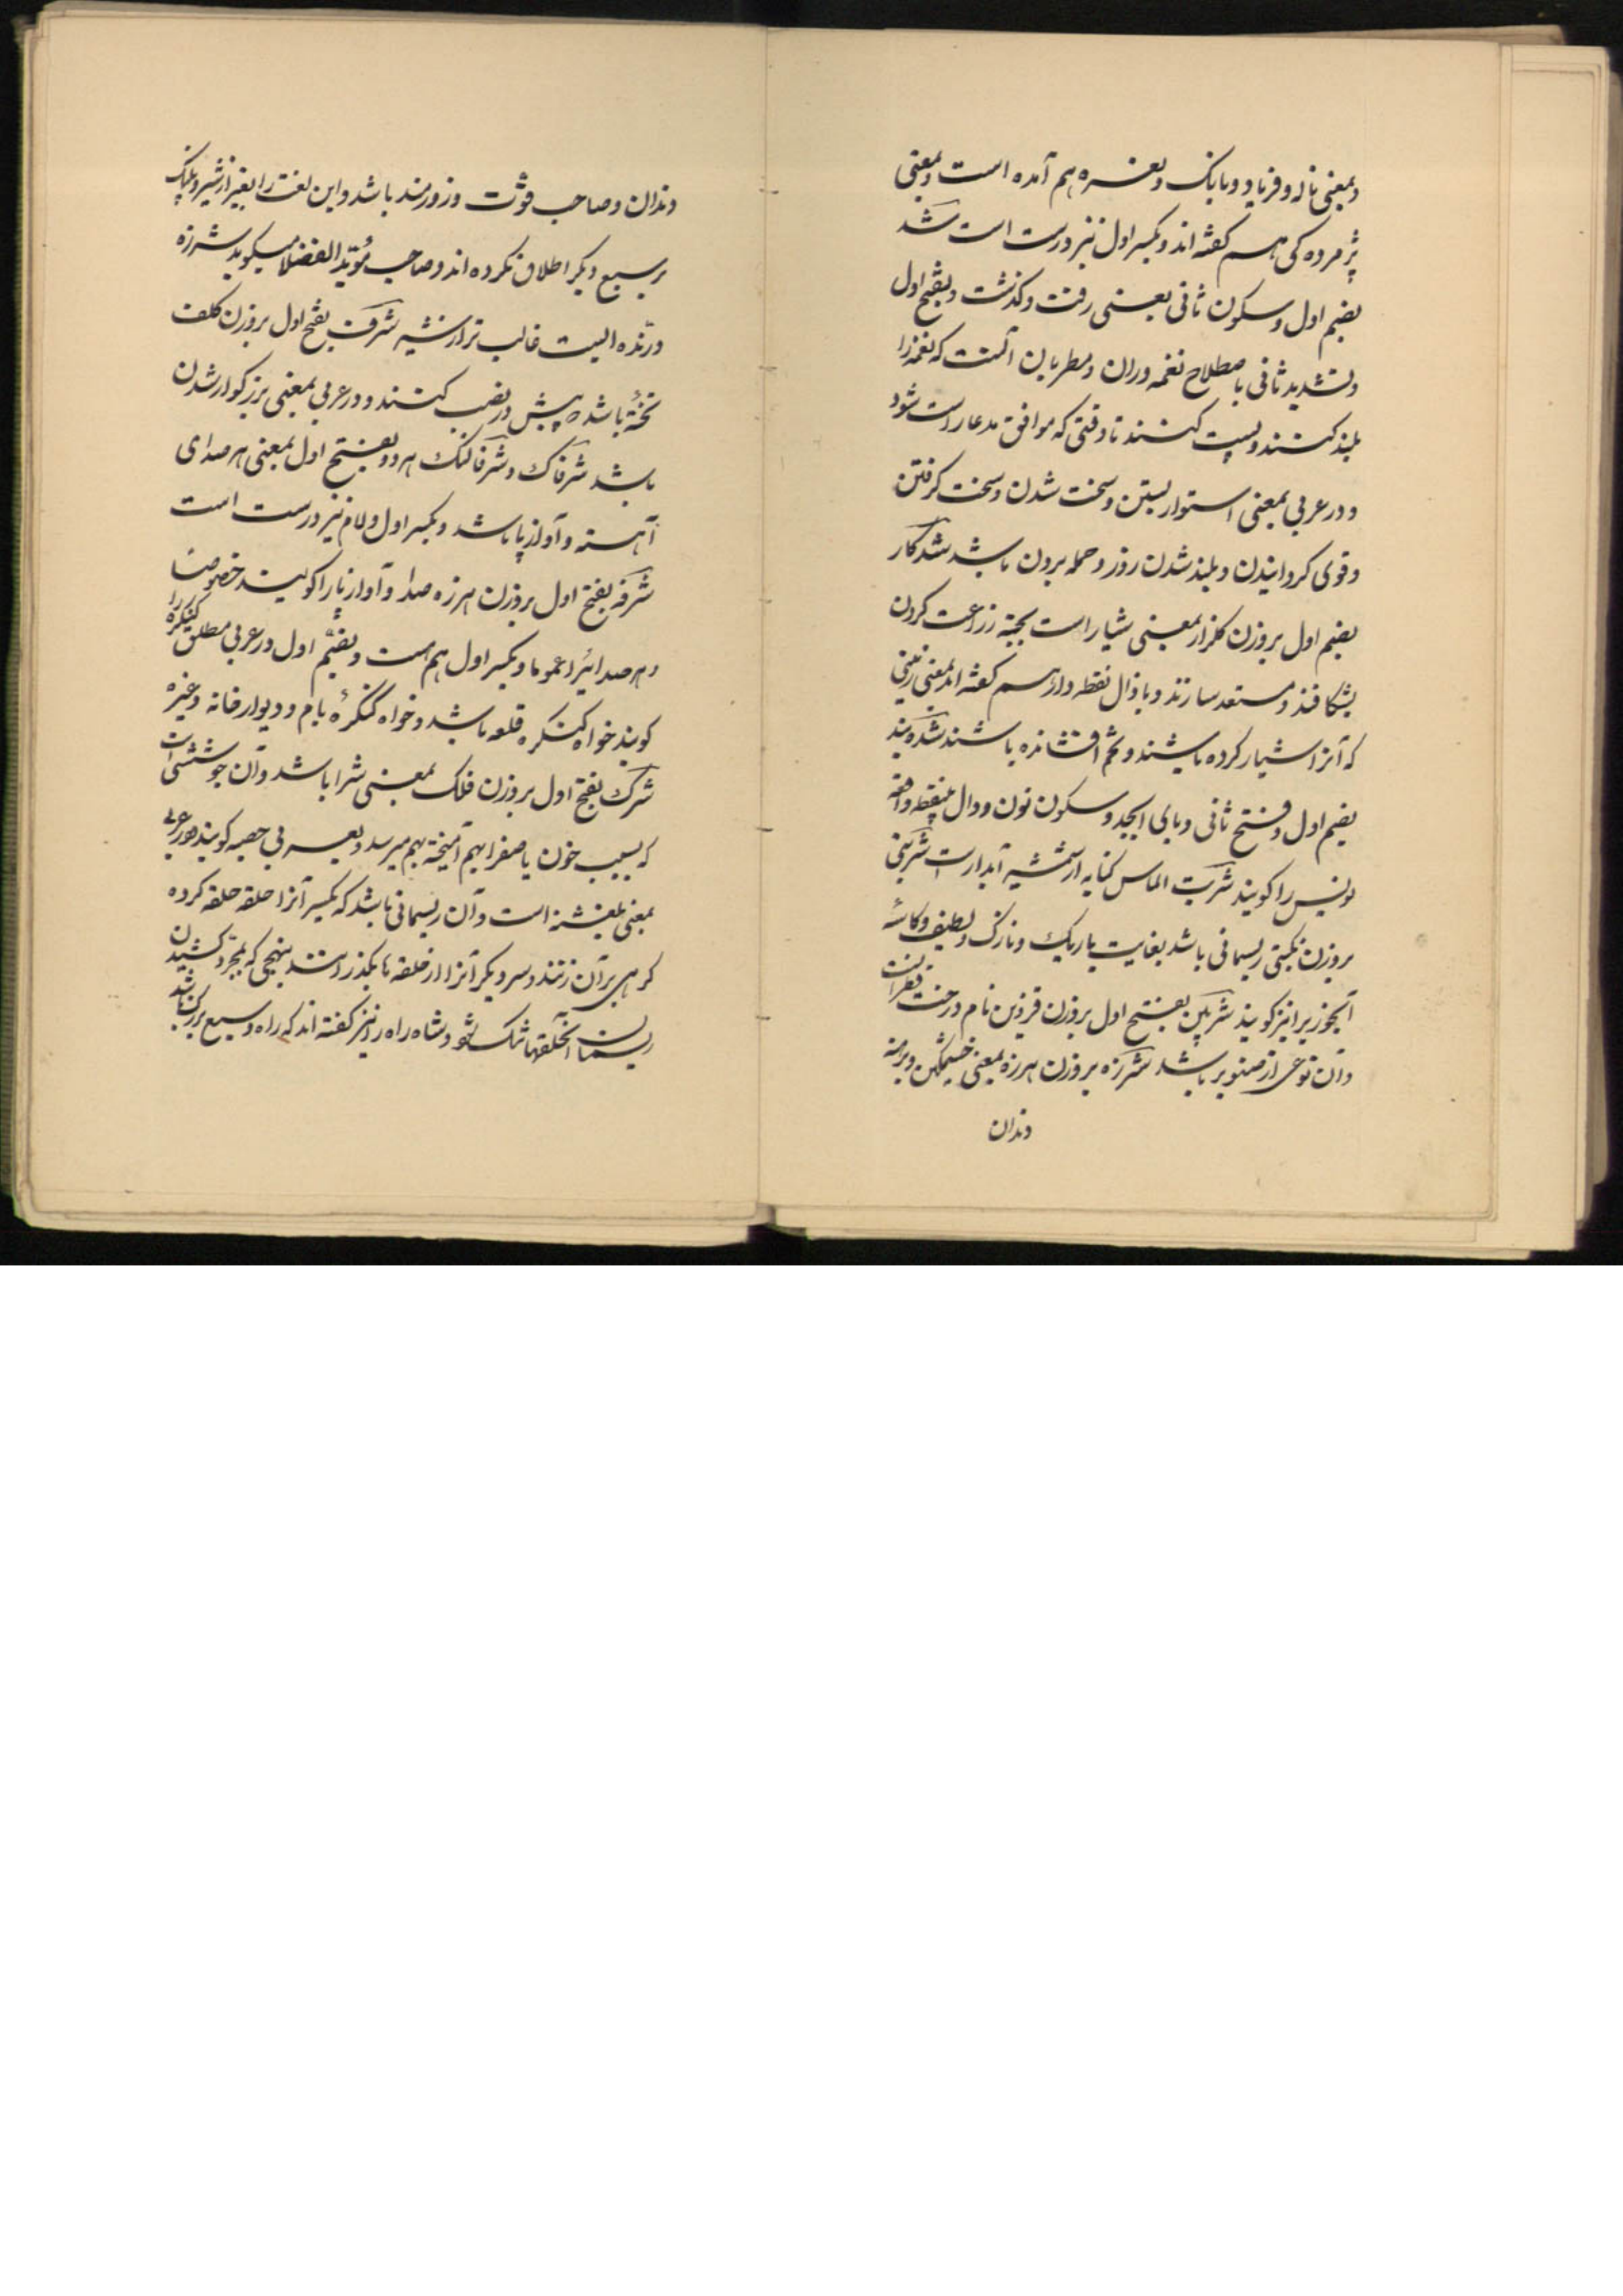 وبمعنی ناله وفریاد وبانک ونعره هم آمده است وبمعنی
پژمرده کی هم کفته اند وبکسر اول نیز درست است شد
بضم اول وسکون ثانی یعنی رفت وکذشت وبفتح اول
وتشدید ثانی باصطلاح نغمه وران ومطربان آنست که نغمه را
بلند کنند وپست کنند تا وقتی که موافق مدعا راست شود
ودر عربی بمعنی استوار بستن وسخت شدن وسخت کرفتن
وقوی کردانیدن وبلند شدن روز وحمله بردن باشد شدکار
بضم اول بروزن کلزار بمعنی شیار است بجهة زراعت کردن
بشکافند ومستعد سازند وبا ذال نقطه دار هم کفته اند بمعنی زمینی
که آنرا شیار کرده باشند وتخم افشانده باشند شدوبند
بضم اول وفتح ثانی وبای ابجد وسکون نون ودال بینقطه واقعه
نویس را کویند شربت الماس کنایه از شمشیر آبدار است شربتی
بروزن نکبتی ریسمانی باشد بغایت باریک ونازک ولطیف وکاسه
آبخوری را نیز کویند شربین بفتح اول بروزن قزوین نام درخت قطرانست
وآن نوعی از صنوبر باشد شرزه بروزن هرزه بمعنی خشمکین وبرهنه
دندان
دندان وصاحب قوّت وزورمند باشد واین لغت را بغیر از شیر وپلنک
بر سبع دیکر اطلاق نکرده اند وصاحب مؤید الفضلا میکوید شرزه
درنده ایست غالب تر از شیر شرف بفتح اول بروزن کلف
تختهٔ باشد که پیش در نصب کنند ودر عربی بمعنی بزرکوار شدن
باشد شرفاک وشرفالنک هر دو بفتح اول بمعنی هر صدای
آهسته وآواز پا باشد وبکسر اول ولام نیز درست است
شرفه بفتح اول بروزن هرزه صدا وآواز پا را کویند خصوصا
وهر صدائیرا عموما وبکسر اول هم هست وبضم اول در عربی مطلق کنکره را
کویند خواه کنکره قلعه باشد وخواه کنکرهٔ بام ودیوار خانه وغیره
شرک بفتح اول بروزن فلک بمعنی شرا باشد وآن جوششی است
که بسبب خون با صفرا بهم آمیخته بهم میرسد وبعربی حصبه کویند ودر عربی
بمعنی است وآن ریسمانی باشد که یکسر آنرا حلقه حلقه کرده
کرهی برآن زنند وسر دیکر آنرا از حلقه ها بکذرانند بنهجی که بمجرد کشیدن
ریسمان آنحلقها تنک شود وشاه راه را نیز کفته اند که راه وسیع بزرک باشد